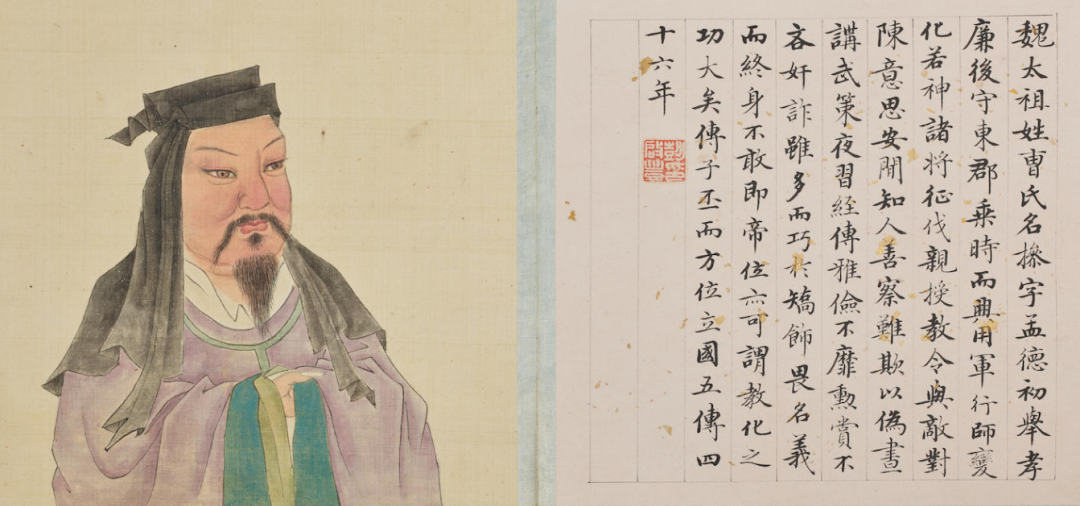 魏太祖姓曹氏名操字孟德初舉孝
廉後守東郡乘時而興用軍行師變
化若神諸將征伐親授教令與敵對
陳意思安閒知人善察難欺以偽晝
講武策夜習經傳雅儉不靡勳賞不
吝奸詐雖多而巧於矯飾畏名義
而終身不敢即帝位亦可謂教化之
功大矣傳子丕而方位立國五傳四
十六年